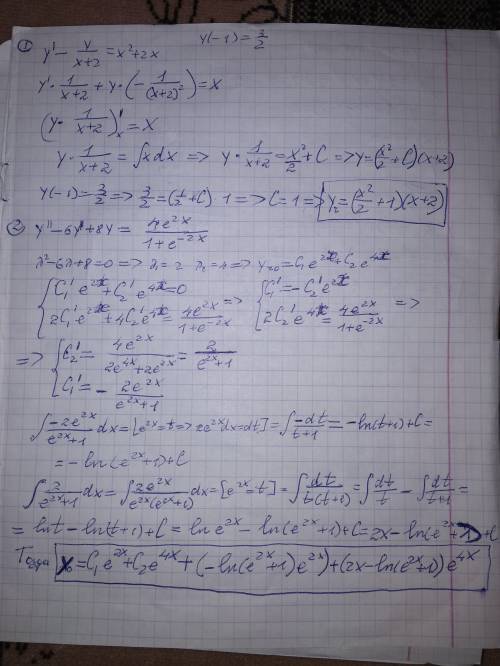 ① y' - y/(x+2) = x²+2x y(-1)=3/2
y'·1/(x+2) + y·(-1/(x+2)²) = x
(y·1/(x+2))'ₓ = x
y·1/(x+2) = ∫xdx => y·1/(x+2) = x²/2 + C => y=(x²/2+C)(x+2)
y(-1)=3/2 => 3/2=(1/2+C)·1 => C=1 => yᵣ=(x²/2+1)(x+2)
② y''-6y'+8y = 4e^(2x)/(1+e^(-2x))
λ²-6λ+8=0 => λ₁=2 λ₂=4 => yₒₒ=C₁e^(2x)+C₂e^(4x)
{C₁'e^(2x)+C₂'e^(4x)=0 => {C₁'=-C₂'e^(2x) =>
2C₁'e^(2x)+4C₂'e^(4x)=4e^(2x)/(1+e^(-2x)) 2C₂'e^(4x)=4e^(2x)/(1+e^(-2x))
=> {C₂'=4e^(2x)/(2e^(4x)+2e^(2x))=2/(e^(2x)+1)
C₁'=-2e^(2x)/(e^(2x)+1)
∫-2e^(2x)/(e^(2x)+1) dx=[e^(2x)=t=>2e^(2x)dx=dt]=∫-dt/(t+1)=-ln(t+1)+C=
=-ln(e^(2x)+1)+C
∫2/(e^(2x)+1) dx=∫2e^(2x)/(e^(2x)(e^(2x)+1)) dx=[e^(2x)=t]=∫dt/(t(t+1))=∫dt/t-∫dt/(t+1)=
=lnt-ln(t+1)+C=ln e^(2x)-ln(e^(2x)+1)+C=2x-ln(e^(2x)+1)+C
Тогда =C₁e^(2x)+C₂e^(4x)+(-ln(e^(2x)+1)e^(2x))+(2x-ln(e^(2x)+1))e^(4x)